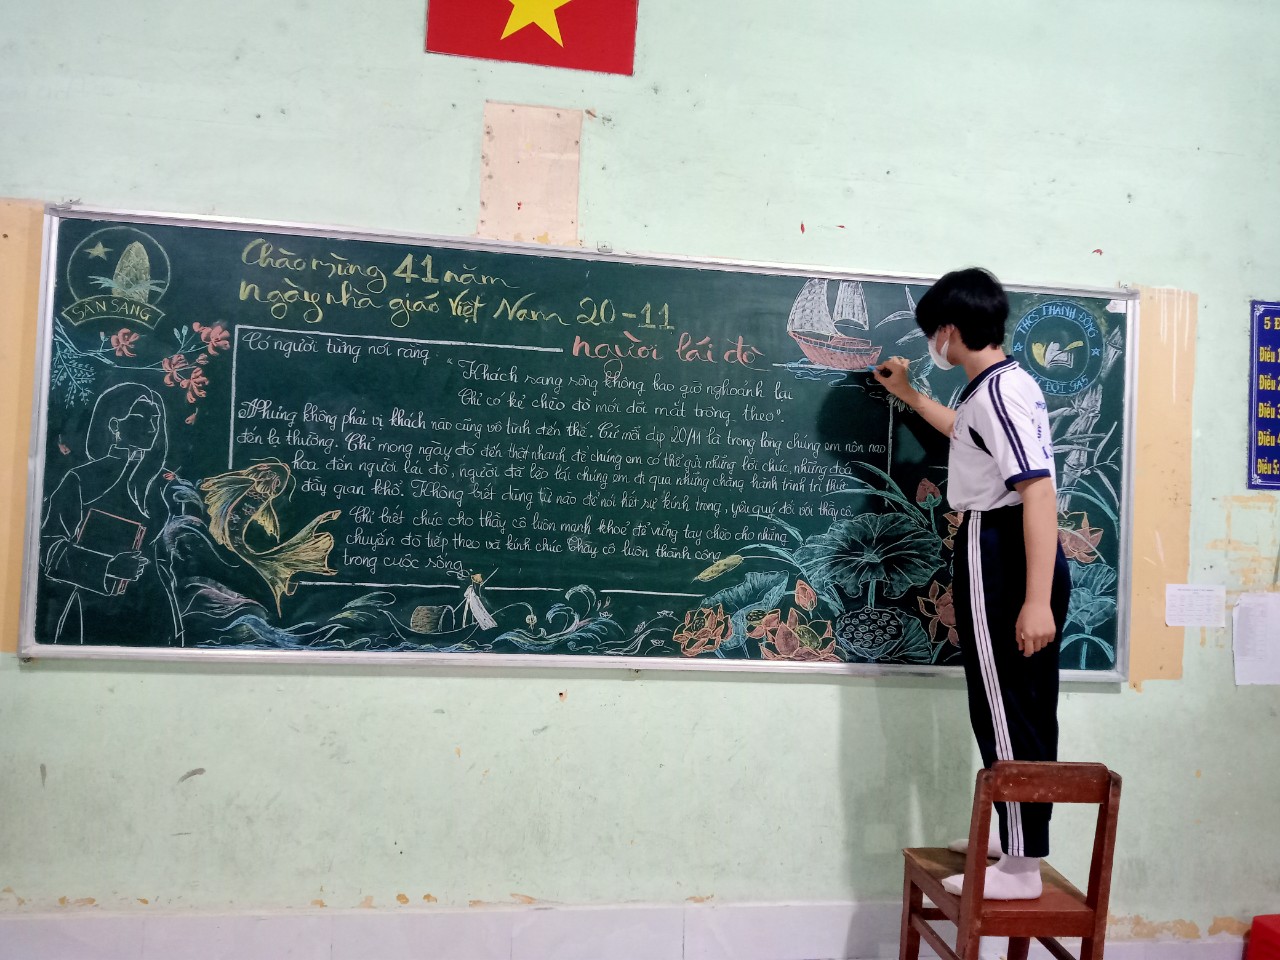 SẴN SÀNG
Chào mừng 41 năm
ngày nhà giáo Việt Nam 20-11
người lái đò
Có người từng nói rằng:
"Khách sang sông không bao giờ nghoảnh lại
Chỉ có kẻ chèo đò mới dõi mắt trông theo".
Nhưng không phải vị khách nào cũng vô tình đến thế. Cứ mỗi dịp 20/11 là trong lòng chúng em nôn nao
đến lạ thường. Chỉ mong ngày đó đến thật nhanh để chúng em có thể gửi những lời chúc, những đoá
hoa đến người lái đò, người đã lèo lái chúng em đi qua những chặng hành trình tri thức
đầy gian khổ. Không biết dùng từ nào để nói hết sự kính trọng, yêu quý đối với thầy cô.
Chỉ biết chúc cho thầy cô luôn mạnh khoẻ để vững tay chèo cho những
chuyến đò tiếp theo và kính chúc Thầy cô luôn thành công
trong cuộc sống.
THCS THẠNH ĐÔNG
ĐỘI 9A5
5 Đ
Điều 1
Điều 2
Điều 3
Điều 4
Điều 5: